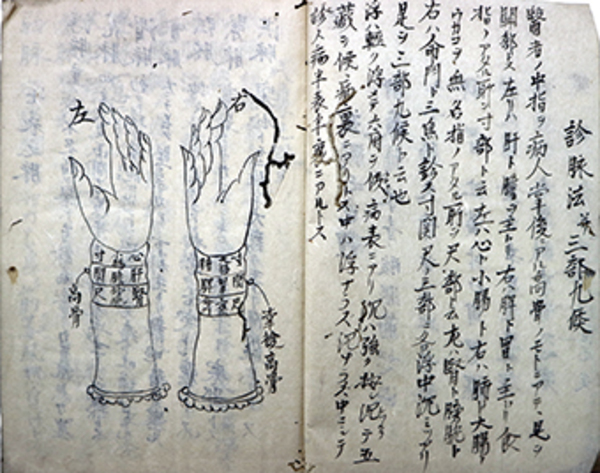 診脉法 并 三部九候
醫者ノ中指ヲ病人掌後ノアル高骨ノモトニアテ、是ヲ
関部ト云左リハ肝ト膽ヲ主ト右ハ脾ト胃ヲ主ト食
指ノアタル所ヲ寸部ト云左ハ心ト小腸ト右ハ肺ト大腸ト
ウカヽフ無名指ノアタル所ヲ尺部ト云左ハ腎ト膀胱ト
右ハ命門ト三焦ト診ス寸関尺ノ三部ニ各浮中沉ミアリ
是ヲ三部九候ト云也
浮ハ輕ク浮ヘテ六府ヲ候病表ニアリ沉ハ強ク按シ沉テ五
藏ヲ候病裏ニアリトス中ハ浮ナラス沉ナラス中ニシテ
診ス病半表半裏ニアルトス
右
左
寸 心
関 肝
尺 腎
高骨
掌後高骨